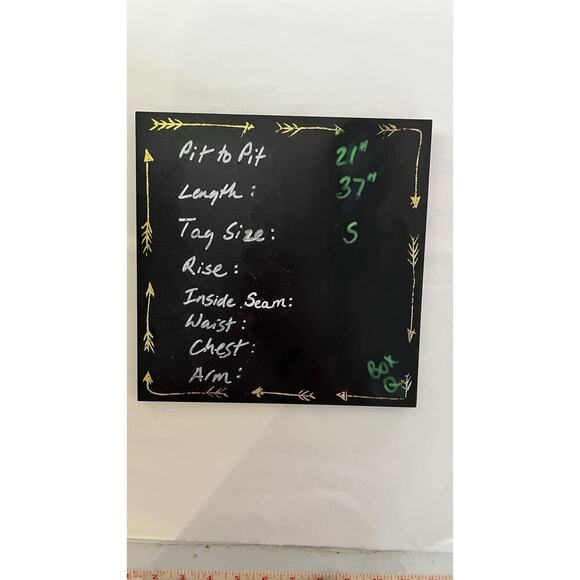 Pit to Pit 21"
Length: 37"
Tag Size: S
Rise:
Inside Seam:
Waist:
Chest:
Arm:
Box
Q